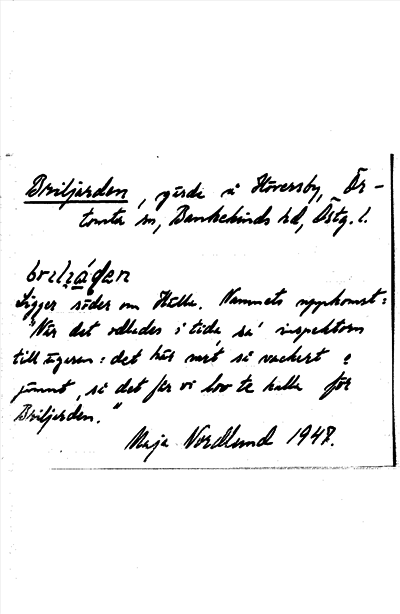 Briljarden, gärde i Hövversby, Ör-
tomta sn, Bankekinds hd, Östg. l.
Ligger söder om Hulla. Namnets uppkomst:
"När det odlades i tida, sa' inspektorn
till ägaren: det här va't så vackert o
jämnt, så det får vi lov te kalla för
Briljarden."
Maja Nordlund 1948.